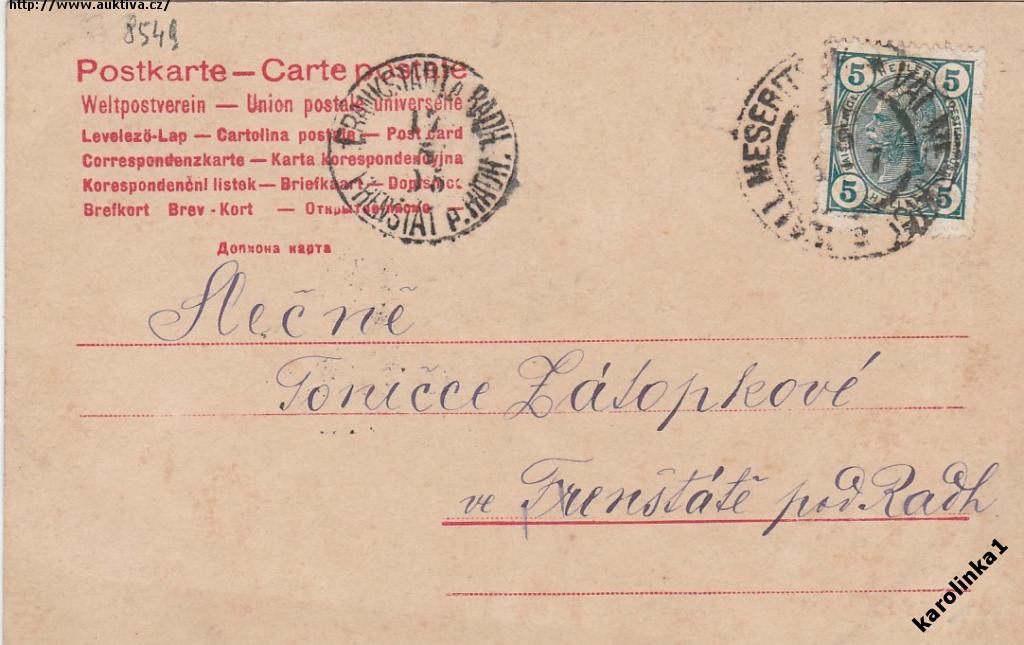 http://www.auktiva.cz/
8549
Postkarte — Carte postale
Weltpostverein — Union postale universelle
Levelező-Lap — Cartolina postale — Post card
Correspondenzkarte — Karta korespondencyjna
Korespondenční listek — Briefkaart — Dopisnica
Brefkort Brev-Kort — Открытое письмо —
Допкона карта
FRANKSTADT A. RADH.
17
FRENŠTÁT P. RADH.
MESERITSCH
5 5
5 5
Slečně
Toničce Zátopkové
ve Frenštátě pod Radh
karolinka1